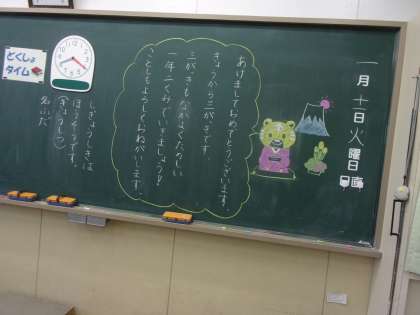 一月十日火曜日
あけましておめでとうございます。
きょうから三がっきです。
三がっきもなかよくたのしい
一年二くみにしていきましょう!
ことしもよろしくおねがいします。
しぎょうしきは
ほうそうです。
どくしょ
タイム